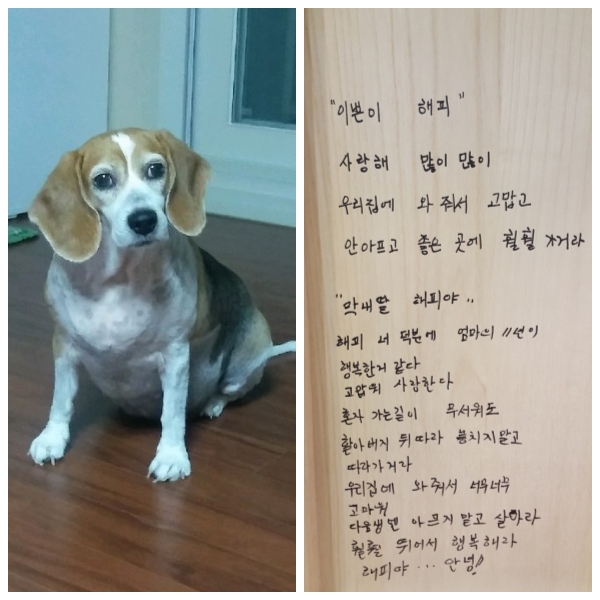 "이쁜이 해피"
사랑해 많이 많이
우리집에 와 줘서 고맙고
안아프고 좋은 곳에 훨훨 가거라
"막내딸 해피야"
해피 너 덕분에 엄마의 11년이
행복한거 같다
고맙워 사랑한다
혼자 가는길이 무서워도
할아버지 뒤따라 뭉치지말고
따라가거라
우리집에 와줘서 너무너무
고마워
다음생엔 아프지 말고 살아라
훨훨 뛰어서 행복해라
해피야 ... 안녕!!